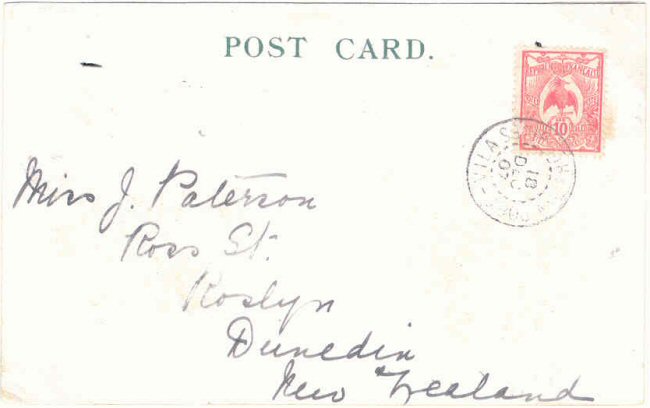 POST CARD.
REPUBLIQUE FRANÇAISE
10
VILA
18
DEC
07
Miss J. Paterson
Ross St.
Roslyn
Dunedin
New Zealand